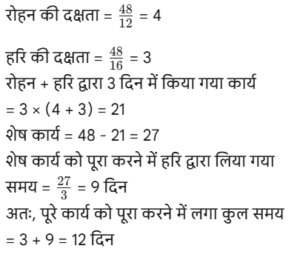 रोहन की दक्षता = 48/12 = 4
हरि की दक्षता = 48/16 = 3
रोहन + हरि द्वारा 3 दिन में किया गया कार्य
= 3 × (4 + 3) = 21
शेष कार्य = 48 - 21 = 27
शेष कार्य को पूरा करने में हरि द्वारा लिया गया
समय = 27/3 = 9 दिन
अतः, पूरे कार्य को पूरा करने में लगा कुल समय
= 3 + 9 = 12 दिन